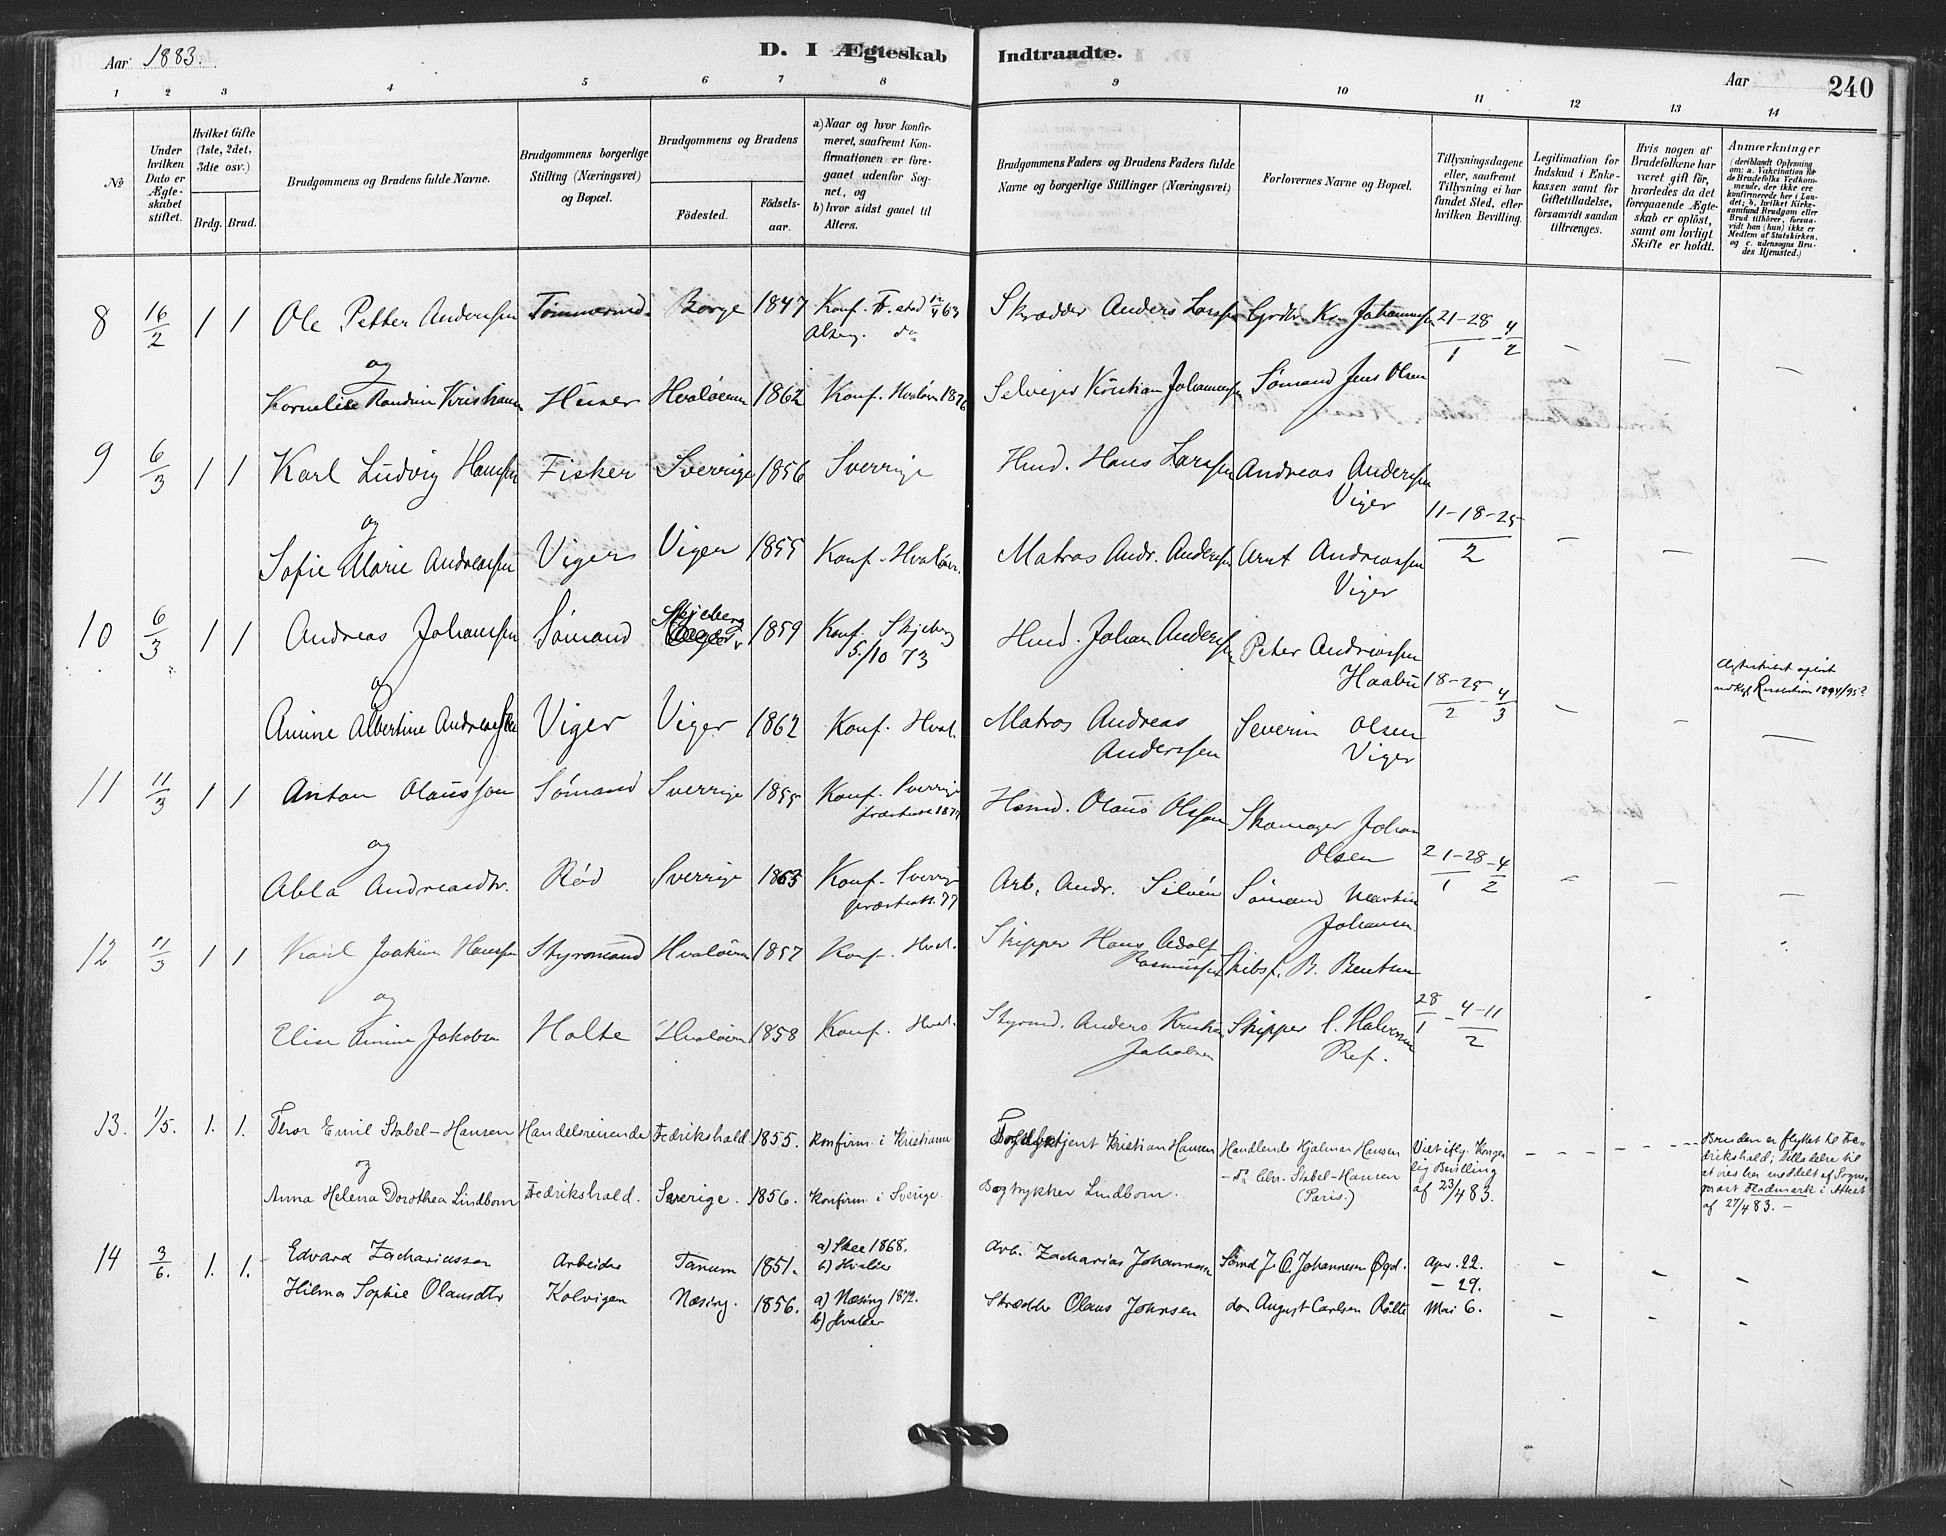 Aar 1883.
D. I Ægteskab Indtraadte.
Aar
240
1 2 3 4 5 6 7 8 9 10 11 12 13 14
No
Under hvilken Dato er Ægteskabet stiftet.
Hvilket Gifte (1ste, 2det, 3die osv.)
Brdg. Brud.
Brudgommens og Brudens fulde Navne.
Brudgommens borgerlige Stilling (Næringsvei) og Bopæl.
Brudgommens og Brudens
Fødested. Fødselsaar.
a) Naar og hvor Konfirmeret, saafremt Konfirmationen er foregaaet udenfor Sognet, og
b) hvor sidst gaaet til Alters.
Brudgommens Faders og Brudens Faders fulde Navne og borgerlige Stillinger (Næringsvei)
Forlovernes Navne og Bopæl.
Tillysningsdagene eller, saafremt Tillysning ei har fundet Sted, efter hvilken Bevilling.
Legitimation for Indskud i Enkekassen samt for Giftetilladelse, forsaavidt saadan tiltrænges.
Hvis nogen af Brudefolkene har været gift før, hvorledes da det foregaaende Ægteskab er opløst, samt om lovligt Skifte er holdt.
Anmærkninger
(deriblandt Oplysning om: a. Vakcination for de Brudefolks Vedkommende, der ikke ere konfirmerede her i Landet; b, hvilket Kirkesamfund Brudgom eller Brud tilhører, forsaavidt han (hun) ikke er Medlem af Statskirken, og c. udensogns Brudes Hjemsted.)
8 16/2 1 1 Ole Petter Anderssen Tømmermd. Borge 1847 Konf. Fr.stad 12/4 63 Skrædder Anders Larssen Johannessen 21-28/1 - 4/2 –
og Alterg. do
Kornelie Randine Kristians Huser Hvaløerne 1862 Konf. Hvaløer 1876 Selveier Kristian Johannessen Sømand Jens Olsen –
9 6/3 1 1 Karl Ludvig Hanssen Fisker Sverrige 1856 Sverrige Hmd. Hans Larssen Andreas Anderssen Viger 11-18-25/2
og
Sofie Marie Andreassen Viger Viger 1855 Konf. Hvaløer. Matros Andr. Anderssen Arnt Andreassen Viger – – –
10 6/3 1 1 Andreas Johanssen Sømand Skjeberg 1859 Konf. Skjeberg 5/10 73 Hmd. Johan Anderssen Peter Andreassen 18-25/2 - 4/3 Ægteskabet opløst
ved Kgl. Resolution 1894/95?
og
Amine Albertine Andreassen Viger Viger 1862 Konf. Hval. Matros Andreas Anderssen Severin Olsen Viger – – –
11 11/3 1 1 Anton Olausson Sømand Sverrige 1855 Konf. Sverrige Hemd. Olaus Olsson Skomager Johan Olsen 21-28/1 - 4/2
og
Abla Andreasdtr. Rød Sverrige 1863 Konf. Sverrig 77 Arb. Andr. Silvén Sømand Martin Johansen – – –
12 11/3 1 1 Karl Joakim Hanssen Styrmand Hvaløerne 1857 Konf. Hval. Skipper Hans Adolf Rasmussen Skibsf. B. Bentsen
og
Elise Amine Jakobsen Holte Hvaløerne 1858 Konf. Hval. Styrmd. Anders Kristian Jakobsen Skipper C. Halvorsen Ref. 28/1 - 4-11/2
13. 1/5. 1. 1. Emil Stabel-Hansen Handelsreisende Fredrikshald. 1855. Konfirm. i Kristiania Kristian Hansen Handlende Hjalmar Hansen Viet iflg. Kongelig Bevilling af 23/4 83. – – – – – Bruden er flyttet til Fredrikshald; Tilladelse til
og
Anna Helena Dorothea Lindbom Fredrikshald. Sverige. 1856. Konfirm. i Sverige. Bogtrykker Lindbom. – do Chr. Stabel-Hansen (Paris.) at vies her meddelt af Sognepræst Flodmark i Attest af 27/4 83. –
14 3/6. 1. 1. Edvard Zachariassen Arbeider Tanum 1851. a) Skee 1868. b) Hvaløer Arb. Zacharias Johannesen Sømd J. O. Johannesen Øgd. Apr. 22. – 29. – – –
Hilma Sophie Olausdtr Kolvigen Næsing. 1856. a) Næsing 1872. b) Hvaløer Skrædder Olaus Johnsen do August Carlsen Rølte Mai 6. – – –